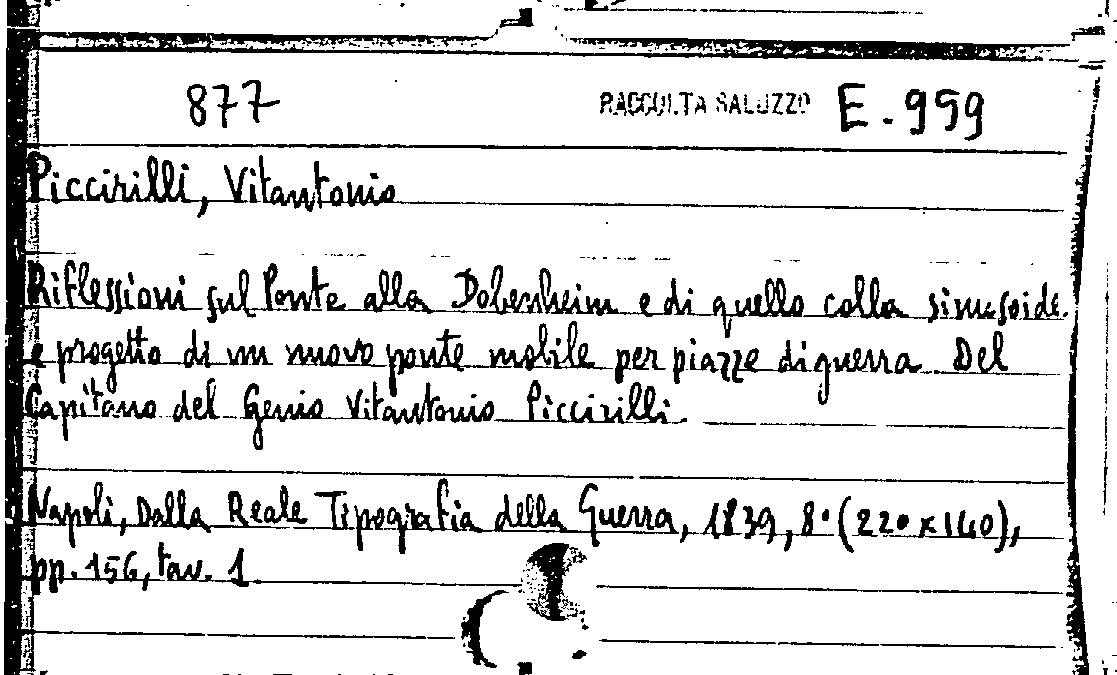 877 RACCOLTA SALUZZO E. 959
Piccirilli, Vitantonio
Riflessioni sul Ponte alla Dobenheim e di quello colla sinusoide.
e progetto di un nuovo ponte mobile per piazze di guerra. Del
Capitano del Genio Vitantonio Piccirilli.
Napoli, Dalla Reale Tipografia della Guerra, 1839, 8° (220 x 140),
pp. 156, tav. 1